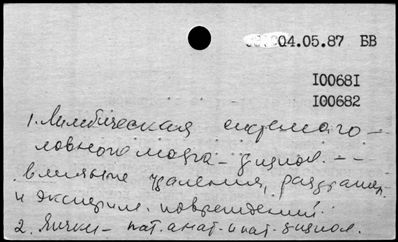 04.05.87 БВ
I0068I
I00682
1. Лимбическая система го-
ловного мозга - физиол. --
влияние удаления, раздражен.
и эксперим. повреждений.
2. Яички - пат. анат. и пат. физиол.